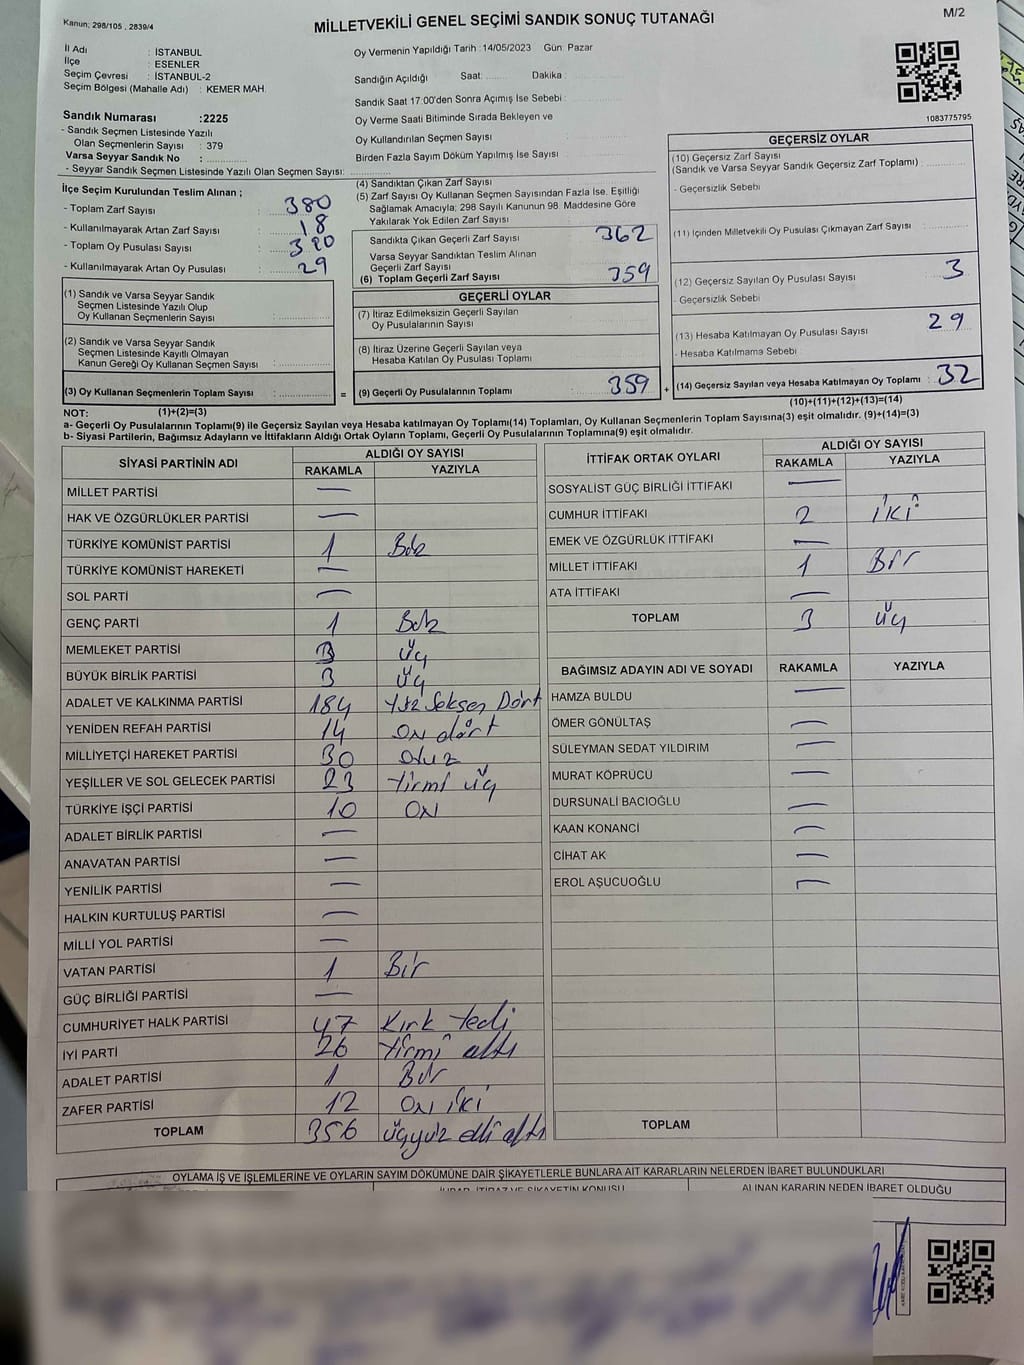 Kanun; 298/105 , 2839/4
MİLLETVEKİLİ GENEL SEÇİMİ SANDIK SONUÇ TUTANAĞI
M/2
İl Adı : İSTANBUL
İlçe : ESENLER
Seçim Çevresi : İSTANBUL-2
Seçim Bölgesi (Mahalle Adı) : KEMER MAH.
Sandık Numarası :2225
- Sandık Seçmen Listesinde Yazılı
Olan Seçmenlerin Sayısı : 379
Varsa Seyyar Sandık No :
- Seyyar Sandık Seçmen Listesinde Yazılı Olan Seçmen Sayısı:
Oy Vermenin Yapıldığı Tarih :14/05/2023 Gün: Pazar
Sandığın Açıldığı Saat: Dakika :
Sandık Saat 17:00'den Sonra Açımış İse Sebebi :
Oy Verme Saati Bitiminde Sırada Bekleyen ve
Oy Kullandırılan Seçmen Sayısı :
Birden Fazla Sayım Döküm Yapılmış İse Sayısı :
1083775795
İlçe Seçim Kurulundan Teslim Alınan ;
- Toplam Zarf Sayısı : 380
- Kullanılmayarak Artan Zarf Sayısı : 18
- Toplam Oy Pusulası Sayısı :
- Kullanılmayarak Artan Oy Pusulası : 29
(1) Sandık ve Varsa Seyyar Sandık
Seçmen Listesinde Yazılı Olup
Oy Kullanan Seçmenlerin Sayısı :
(2) Sandık ve Varsa Seyyar Sandık
Seçmen Listesinde Kayıtlı Olmayan
Kanun Gereği Oy Kullanan Seçmen Sayısı :
(3) Oy Kullanan Seçmenlerin Toplam Sayısı : =
(1)+(2)=(3)
(4) Sandıktan Çıkan Zarf Sayısı :
(5) Zarf Sayısı Oy Kullanan Seçmen Sayısından Fazla İse, Eşitliği
Sağlamak Amacıyla; 298 Sayılı Kanunun 98. Maddesine Göre
Yakılarak Yok Edilen Zarf Sayısı :
Sandıkta Çıkan Geçerli Zarf Sayısı : 362
Varsa Seyyar Sandıktan Teslim Alınan
Geçerli Zarf Sayısı :
(6) Toplam Geçerli Zarf Sayısı : 359
GEÇERLİ OYLAR
(7) İtiraz Edilmeksizin Geçerli Sayılan
Oy Pusulalarının Sayısı :
(8) İtiraz Üzerine Geçerli Sayılan veya
Hesaba Katılan Oy Pusulası Toplamı :
(9) Geçerli Oy Pusulalarının Toplamı : 359 +
GEÇERSİZ OYLAR
(10) Geçersiz Zarf Sayısı
(Sandık ve Varsa Seyyar Sandık Geçersiz Zarf Toplamı) :
- Geçersizlik Sebebi :
(11) İçinden Milletvekili Oy Pusulası Çıkmayan Zarf Sayısı :
(12) Geçersiz Sayılan Oy Pusulası Sayısı : 3
- Geçersizlik Sebebi :
(13) Hesaba Katılmayan Oy Pusulası Sayısı : 29
- Hesaba Katılmama Sebebi :
(14) Geçersiz Sayılan veya Hesaba Katılmayan Oy Toplamı : 32
(10)+(11)+(12)+(13)=(14)
NOT:
a- Geçerli Oy Pusulalarının Toplamı(9) ile Geçersiz Sayılan veya Hesaba katılmayan Oy Toplamı(14) Toplamları, Oy Kullanan Seçmenlerin Toplam Sayısına(3) eşit olmalıdır. (9)+(14)=(3)
b- Siyasi Partilerin, Bağımsız Adayların ve İttifakların Aldığı Ortak Oyların Toplamı, Geçerli Oy Pusulalarının Toplamına(9) eşit olmalıdır.
SİYASİ PARTİNİN ADI ALDIĞI OY SAYISI
RAKAMLA YAZIYLA
MİLLET PARTİSİ —
HAK VE ÖZGÜRLÜKLER PARTİSİ —
TÜRKİYE KOMÜNİST PARTİSİ 1
TÜRKİYE KOMÜNİST HAREKETİ —
SOL PARTİ —
GENÇ PARTİ 1
MEMLEKET PARTİSİ 3 üç
BÜYÜK BİRLİK PARTİSİ 3 üç
ADALET VE KALKINMA PARTİSİ 184 Yüz Seksen Dört
YENİDEN REFAH PARTİSİ 14 On dört
MİLLİYETÇİ HAREKET PARTİSİ 30 Otuz
YEŞİLLER VE SOL GELECEK PARTİSİ 23 Yirmi üç
TÜRKİYE İŞÇİ PARTİSİ 10 ON
ADALET BİRLİK PARTİSİ —
ANAVATAN PARTİSİ —
YENİLİK PARTİSİ —
HALKIN KURTULUŞ PARTİSİ —
MİLLİ YOL PARTİSİ —
VATAN PARTİSİ 1 Bir
GÜÇ BİRLİĞİ PARTİSİ —
CUMHURİYET HALK PARTİSİ 47 Kırk Yedi
İYİ PARTİ 26 Yirmi altı
ADALET PARTİSİ 1 Bir
ZAFER PARTİSİ 12 ON İKİ
TOPLAM 356 üçyüz elli altı
İTTİFAK ORTAK OYLARI ALDIĞI OY SAYISI
RAKAMLA YAZIYLA
SOSYALİST GÜÇ BİRLİĞİ İTTİFAKI —
CUMHUR İTTİFAKI 2 İKİ
EMEK VE ÖZGÜRLÜK İTTİFAKI —
MİLLET İTTİFAKI 1 Bir
ATA İTTİFAKI —
TOPLAM 3 üç
BAĞIMSIZ ADAYIN ADI VE SOYADI RAKAMLA YAZIYLA
HAMZA BULDU —
ÖMER GÖNÜLTAŞ —
SÜLEYMAN SEDAT YILDIRIM —
MURAT KÖPRÜCÜ —
DURSUNALİ BACIOĞLU —
KAAN KONANCİ —
CİHAT AK —
EROL AŞUCUOĞLU —
TOPLAM
OYLAMA İŞ VE İŞLEMLERİNE VE OYLARIN SAYIM DÖKÜMÜNE DAİR ŞİKAYETLERLE BUNLARA AİT KARARLARIN NELERDEN İBARET BULUNDUKLARI
İTİRAZ VE ŞİKAYETİN KONUSU ALINAN KARARIN NEDEN İBARET OLDUĞU